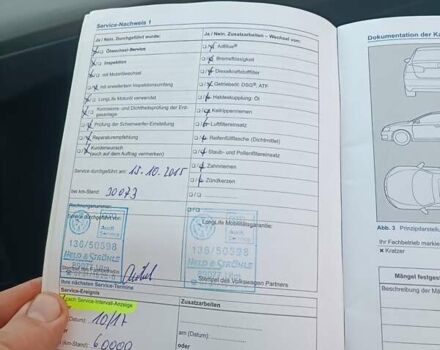 Service-Nachweis 1
Ja / Nein, Durchgeführt wurde:
Ölwechsel-Service
Inspektion
mit Motorölwechsel
mit erweitertem Inspektionsumfang
LongLife Motoröl verwendet
Korrosions- und Dichtheitsprüfung der Erdgasanlage
Prüfung der Scheinwerfer-Einstellung
Reparaturempfehlung
Kundenwunsch
(auch auf dem Auftrag vermerken)
Service durchgeführt am: 13.10.2015
bei km-Stand: 30073
Rechnungsnummer:
Service durchgeführt von
136/50598
HELD & STRÖHLE
89077 Ulm
Ihre nächsten Service-Termine
Service-Ereignis
nach Service-Intervall-Anzeige
(Datum): 10/17
60000
Ja / Nein, Zusatzarbeiten – Wechsel von:
AdBlue®
Bremsflüssigkeit
Dieselkraftstofffilter
Getriebeöl: DSG®, ATF
Haldexkupplung: Öl
Keilrippenriemen
Luftfiltereinsatz
Reifenfüllflasche (Dichtmittel)
Staub- und Pollenfiltereinsatz
Zahnriemen
Zündkerzen
LongLife Mobilitätsgarantie:
136/50598
HELD & STRÖHLE
89077 Ulm
Stempel des Volkswagen Partners
Zusatzarbeiten
am (Datum):
oder
Dokumentation der Ka
Abb. 3 Prinzipdarstell
Ihr Fachbetrieb markie
× Kratzer
Mängel festges
Beschreibung der Mä